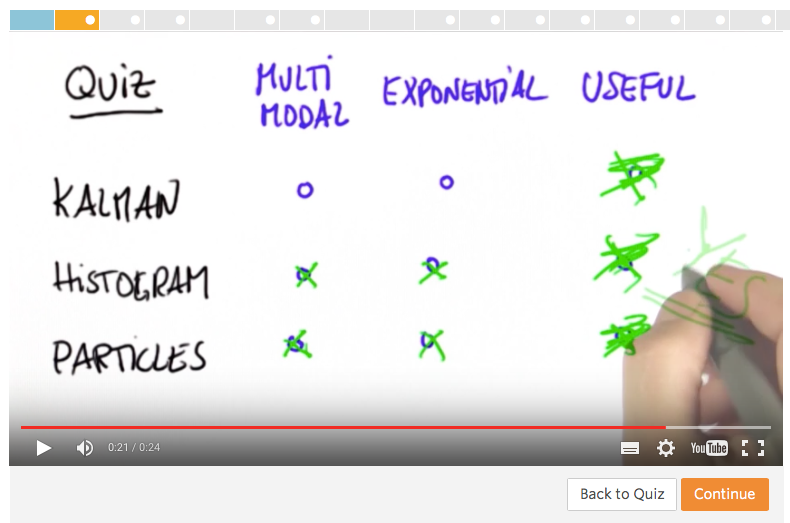 QUIZ MULTI MODAL EXPONENTIAL USEFUL
KALMAN
HISTOGRAM
PARTICLES
YES
0:21 / 0:24
YouTube
Back to Quiz Continue